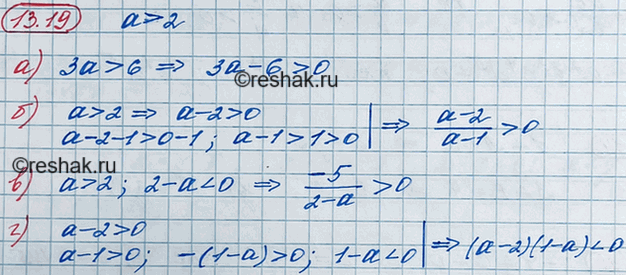 13.19 a>2
а) 3a>6 ⇒ 3a-6>0
©reshak.ru
б) a>2 ⇒ a-2>0
a-2-1>0-1; a-1>1>0 | ⇒ (a-2)/(a-1) >0
©reshak.ru
в) a>2; 2-a<0 ⇒ (-5)/(2-a) >0
г) a-2>0
a-1>0; -(1-a)>0; 1-a<0 | ⇒ (a-2)(1-a)<0